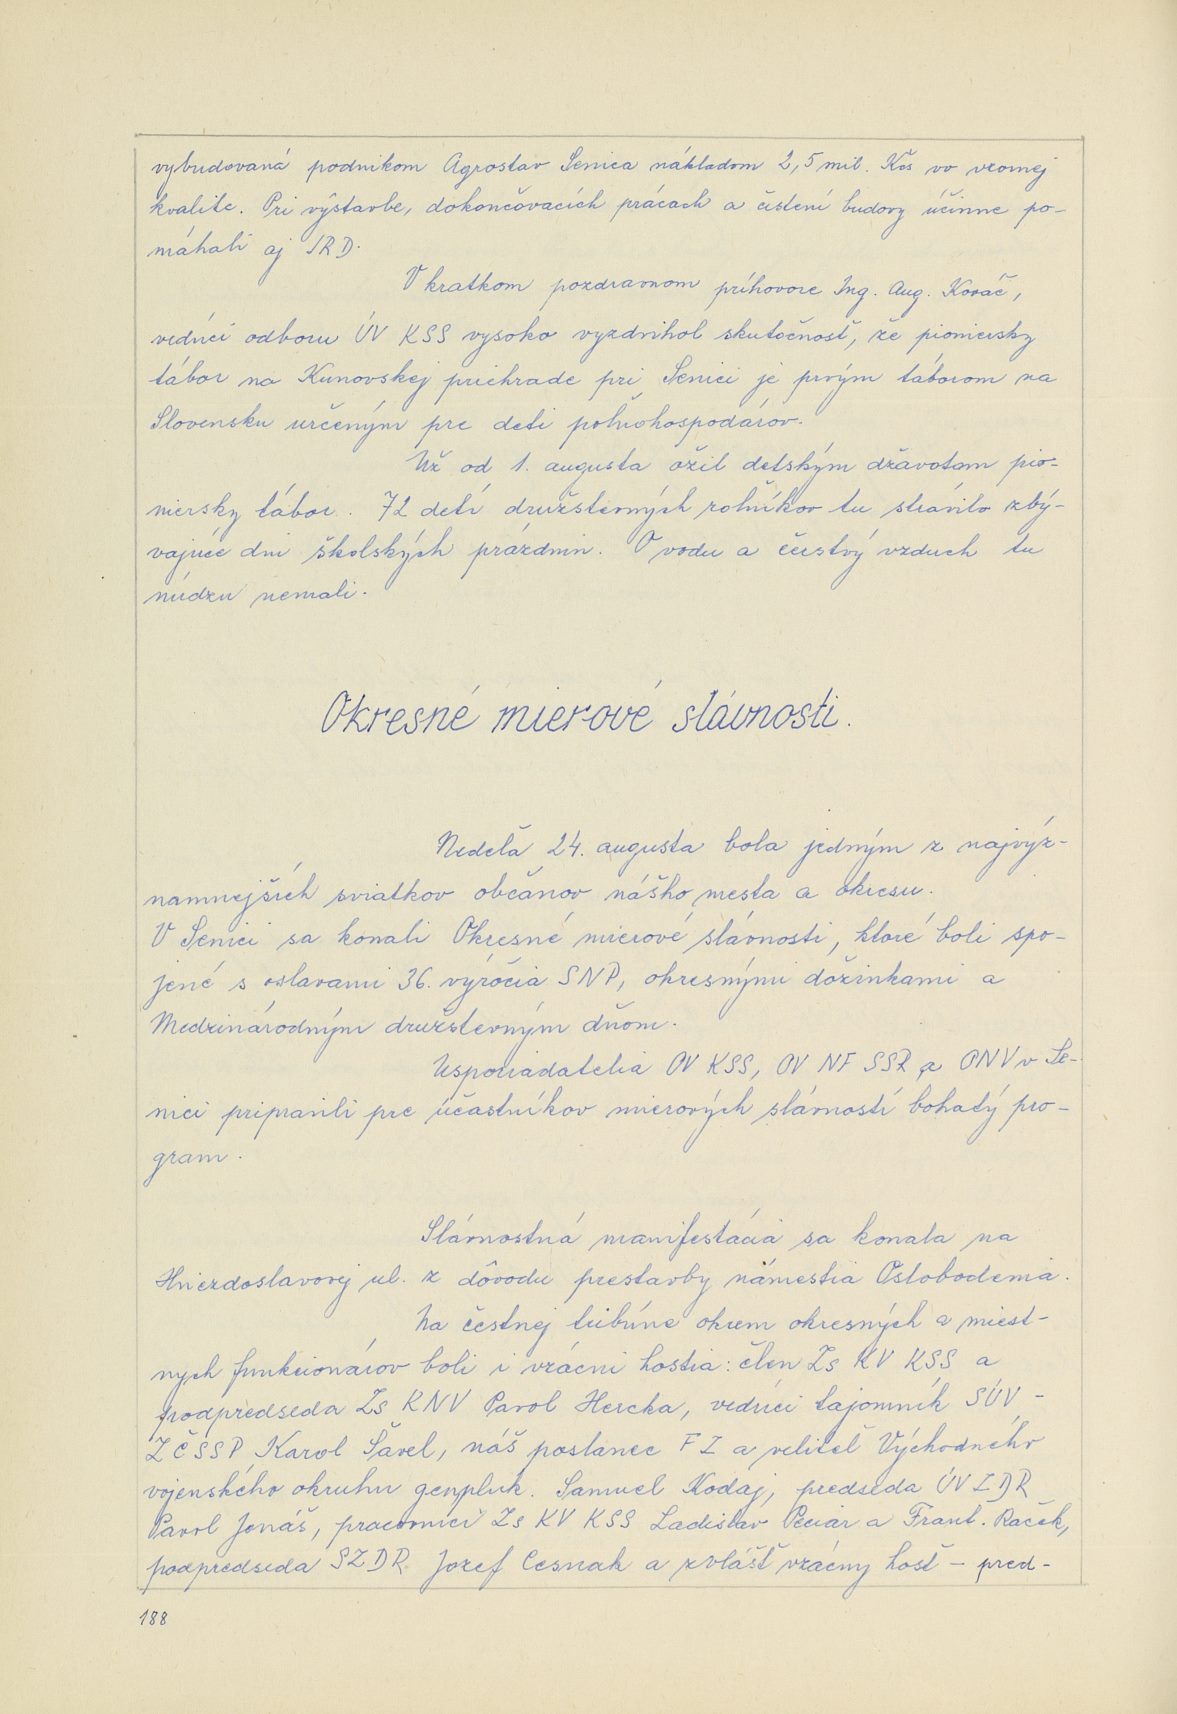 vybudovaná podnikom Agrostav Senica nákladom 2,5 mil. Kčs vo vzornej
kvalite. Pri výstavbe, dokončovacích prácach a čistení budovy účinne po-
máhali aj JRD.
V krátkom pozdravnom príhovore Ing. Aug. Kováč,
vedúci odboru ÚV KSS vysoko vyzdvihol skutočnosť, že pioniersky
tábor na Kunovskej priehrade pri Senici je prvým táborom na
Slovensku určeným pre deti poľnohospodárov.
Už od 1. augusta ožil detským džavotom pio-
niersky tábor. 72 detí družstevných roľníkov tu strávilo zbý-
vajúce dni školských prázdnin. O vodu a čerstvý vzduch tu
núdzu nemali.
Okresné mierové slávnosti.
Nedeľa 24. augusta bola jedným z najvýz-
namnejších sviatkov občanov nášho mesta a okresu.
V Senici sa konali Okresné mierové slávnosti, ktoré boli spo-
jené s oslavami 36. výročia SNP, okresnými dožinkami a
Medzinárodným družstevným dňom.
Usporiadatelia OV KSS, OV NF SSR a ONV v Se-
nici pripravili pre účastníkov mierových slávností bohatý pro-
gram.
Slávnostná manifestácia sa konala na
Hviezdoslavovej ul. z dôvodu prestavby námestia Oslobodenia.
Na čestnej tribúne okrem okresných a miest-
nych funkcionárov boli i vzácni hostia: člen Zs KV KSS a
podpredseda Zs KNV Pavol Hercka, vedúci tajomník SÚV -
ZČSSP Karol Šavel, náš poslanec FZ a veliteľ Východného
vojenského okruhu genpluk. Samuel Kodaj, predseda ÚV ZDR
Pavol Jonáš, pracovníci Zs KV KSS Ladislav Peciar a Frant. Raček,
podpredseda SZDR Jozef Cesnak a zvlášť vzácny hosť - pred-
188